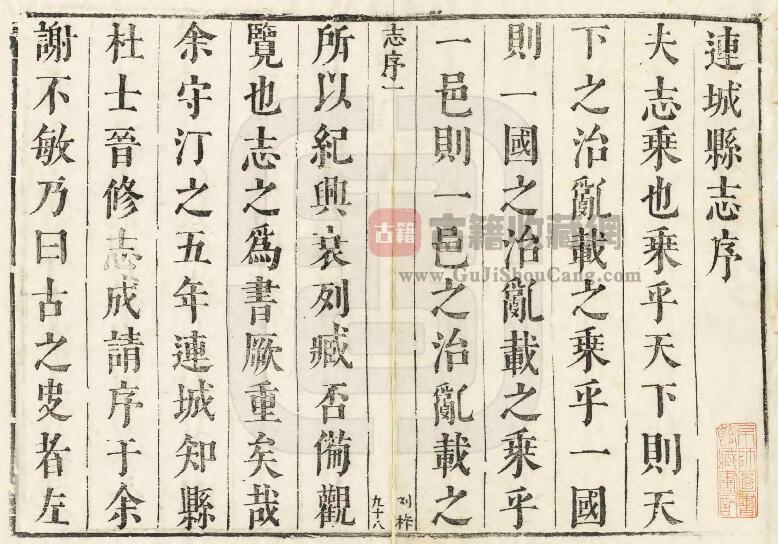 連城縣志序
夫志乗也乗乎天下則天
下之治亂載之乗乎一國
則一國之治亂載之乗乎
一邑則一邑之治亂載之
志序一
九十八
刘
所以紀興衰列臧否備觀
覽也志之爲書厥重矣哉
余守汀之五年連城知縣
杜士晉修志成請序于余
謝不敏乃曰古之史者左
古籍
古籍收藏网
www.GuJiShouCang.com